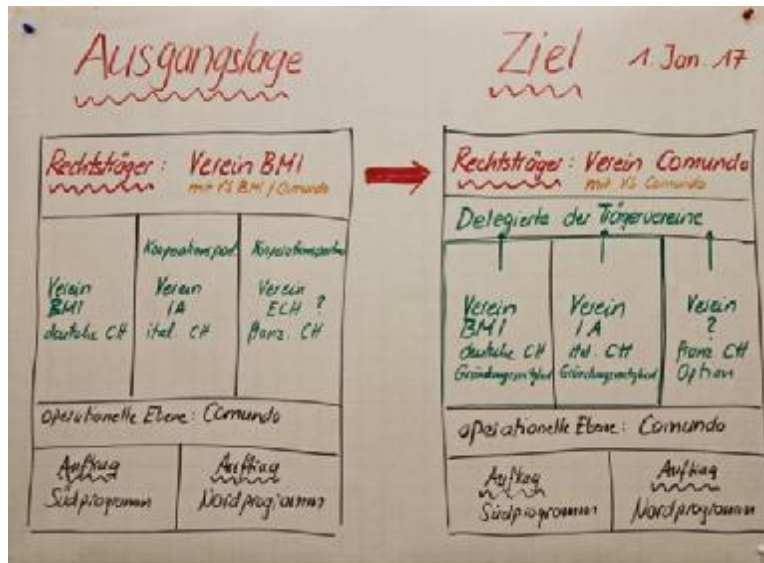 Ausgangslage
Rechtsträger: Verein BMI
mit VS BMI / Comundo
Verein
BMI
deutsche CH
Kooperationspart.
Verein
IA
ital. CH
Kooperationspartner
Verein
ECH ?
franz. CH
operationelle Ebene: Comundo
Auftrag
Südprogramm
Auftrag
Nordprogramm
Ziel 1. Jan. 17
Rechtsträger: Verein Comundo
mit VS Comundo
Delegierte der Trägervereine
Verein
BMI
deutsche CH
Gründungsmitglied
Verein
IA
ital. CH
Gründungsmitglied
Verein
?
franz. CH
Option
operationelle Ebene: Comundo
Auftrag
Südprogramm
Auftrag
Nordprogramm